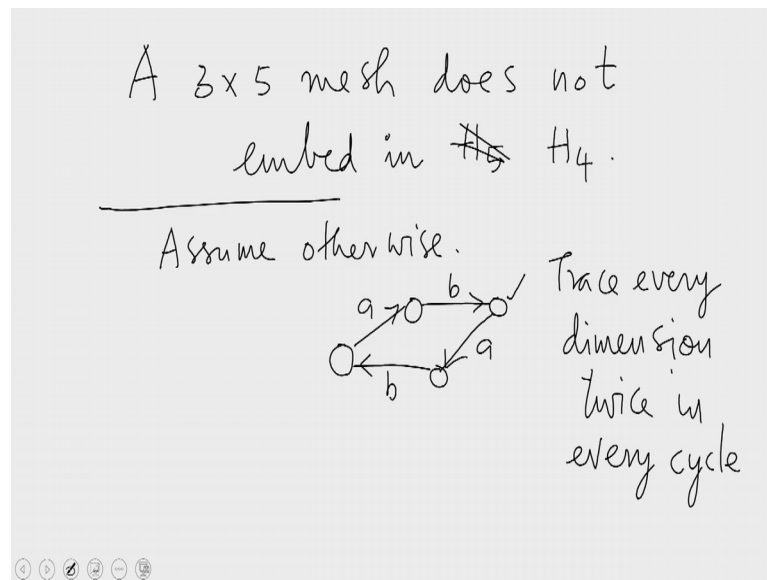 A 3x5 mesh does not
embed in H5 H4.
Assume otherwise.
a
b
a
b
Trace every
dimension
twice in
every cycle